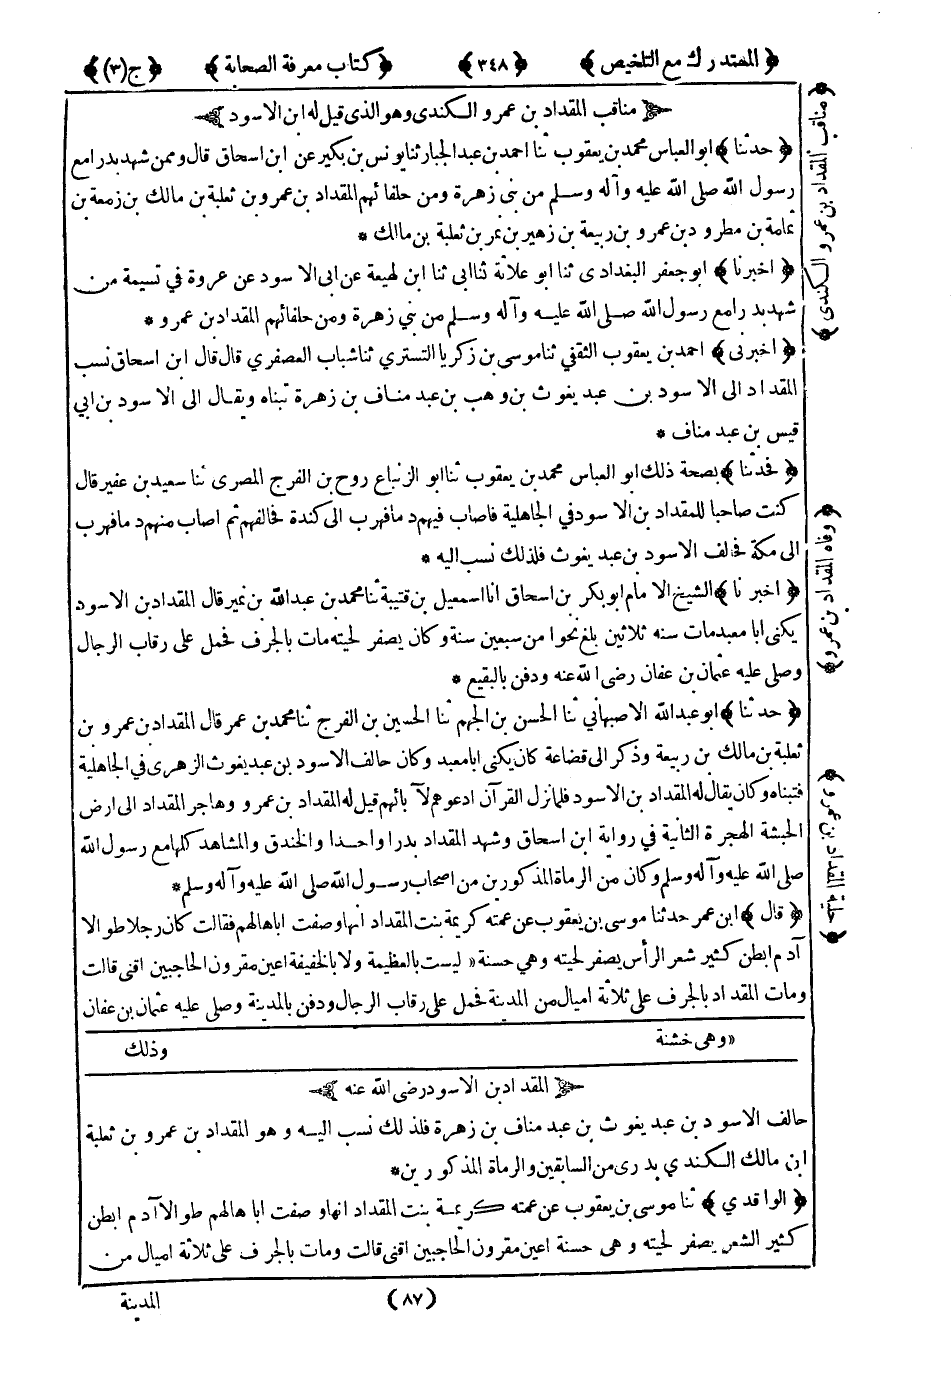 ﴿ المستدرك مع التلخيص ﴾ ﴿ ٣٤٨ ﴾ ﴿ كتاب معرفة الصحابة ﴾ ﴿ ج (٣) ﴾
﴿ مناقب المقداد بن عمرو الكندى وهو الذى قيل له ابن الاسود ﴾
﴿ حدثنا ﴾ ابو العباس محمد بن يعقوب ثنا احمد بن عبد الجبار ثنا يونس بن بكير عن ابن اسحاق قال وممن شهد بدرا مع
رسول الله صلى الله عليه وآله وسلم من بني زهرة ومن حلفائهم المقداد بن عمرو بن ثعلبة بن مالك بن زمعة بن
ثمامة بن مطرود بن عمرو بن ربيعة بن زهير بن نمر بن ثعلبة بن مالك *
﴿ اخبرنا ﴾ ابو جعفر البغدادى ثنا ابو علاثة ثنا ابى ثنا ابن لهيعة عن ابى الاسود عن عروة في تسيمة من
شهد بدرا مع رسول الله صلى الله عليه وآله وسلم من بني زهرة ومن حلفائهم المقداد بن عمرو *
﴿ اخبرنى ﴾ احمد بن يعقوب الثقفي ثنا موسى بن زكريا التستري ثنا شباب العصفري قال قال ابن اسحاق نسب
المقداد الى الاسود بن عبد يغوث بن وهب بن عبد مناف بن زهرة تبناه ويقال الى الاسود بن ابي
قيس بن عبد مناف *
﴿ فحدثنا ﴾ بصحة ذلك ابو العباس محمد بن يعقوب ثنا ابو الزنباع روح بن الفرج المصرى ثنا سعيد بن عفير قال
كنت صاحبا للمقداد بن الاسود في الجاهلية فاصاب فيهم دما فهرب الى كندة فحالفهم ثم اصاب منهم دما فهرب
الى مكة فحالف الاسود بن عبد يغوث فلذلك نسب اليه *
﴿ اخبرنا ﴾ الشيخ الامام ابو بكر بن اسحاق انا اسمعيل بن قتيبة ثنا محمد بن عبد الله بن نمير قال المقداد بن الاسود
يكنى ابا معبد مات سنه ثلاثين بلغ نحوا من سبعين سنة وكان يصفر لحيته مات بالجرف فحمل على رقاب الرجال
وصلى عليه عثمان بن عفان رضى الله عنه ودفن بالبقيع *
﴿ حدثنا ﴾ ابو عبد الله الاصبهاني ثنا الحسن بن الجهم ثنا الحسين بن الفرج ثنا محمد بن عمر قال المقداد بن عمرو بن
ثعلبة بن مالك بن ربيعة وذكر الى قضاعة كان يكنى ابا معبد وكان حالف الاسود بن عبد يغوث الزهرى في الجاهلية
فتبناه وكان يقال له المقداد بن الاسود فلما نزل القرآن ادعوهم لآبائهم قيل له المقداد بن عمرو وهاجر المقداد الى ارض
الحبشة الهجرة الثانية في رواية ابن اسحاق وشهد المقداد بدرا واحدا والخندق والمشاهد كلها مع رسول الله
صلى الله عليه وآله وسلم وكان من الرماة المذكورين من اصحاب رسول الله صلى الله عليه وآله وسلم *
﴿ قال ﴾ ابن عمر حدثنا موسى بن يعقوب عن عمته كريمة بنت المقداد انها وصفت اباها لهم فقالت كان رجلا طوالا
آدم ابطن كثير شعر الرأس يصفر لحيته وهي حسنة « ليست بالعظيمة ولا بالخفيفة اعين مقرون الحاجبين اقنى قالت
ومات المقداد بالجرف على ثلاثة اميال من المدينة فحمل على رقاب الرجال ودفن بالمدينة وصلى عليه عثمان بن عفان
« وهى خشنة وذلك
﴿ المقداد بن الاسود رضى الله عنه ﴾
حالف الاسود بن عبد يغوث بن عبد مناف بن زهرة فلذلك نسب اليه وهو المقداد بن عمرو بن ثعلبة
ابن مالك الكندي بدرى من السابقين والرماة المذكورين *
﴿ الواقدي ﴾ ثنا موسى بن يعقوب عن عمته كريمة بنت المقداد انها وصفت اباها لهم طوالا آدم ابطن
كثير الشعر يصفر لحيته وهى حسنة اعين مقرون الحاجبين اقنى قالت ومات بالجرف على ثلاثة اميال من
(٨٧) المدينة
﴿ مناقب المقداد بن عمرو الكندى ﴾
﴿ وفاة المقداد بن عمرو ﴾
﴿ حلية المقداد بن عمرو ﴾